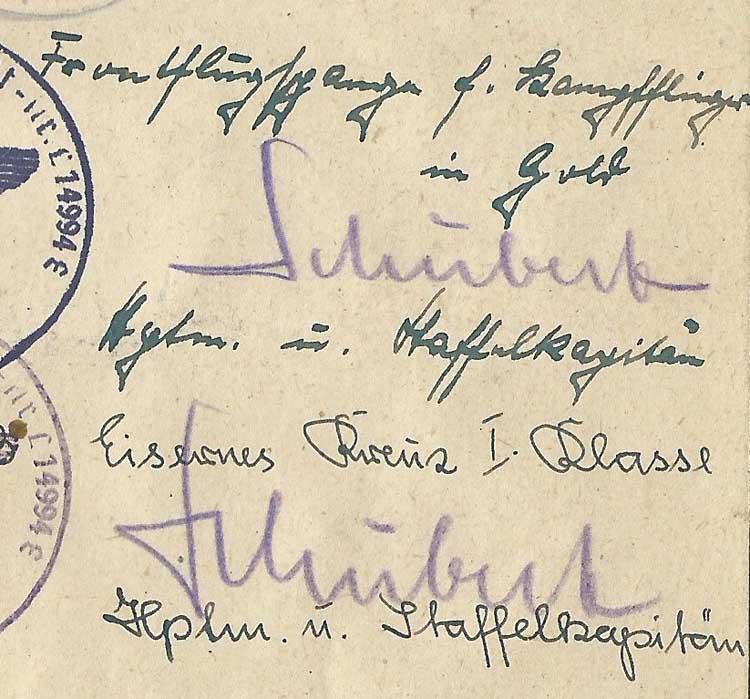 Frontflugspange f. Kampfflieger
in Gold
Schubert
Hptm. u. Staffelkapitän
Eisernes Kreuz I. Klasse
Schubert
Hptm. u. Staffelkapitän
Nr. L 14994 E
Nr. L 14994 E